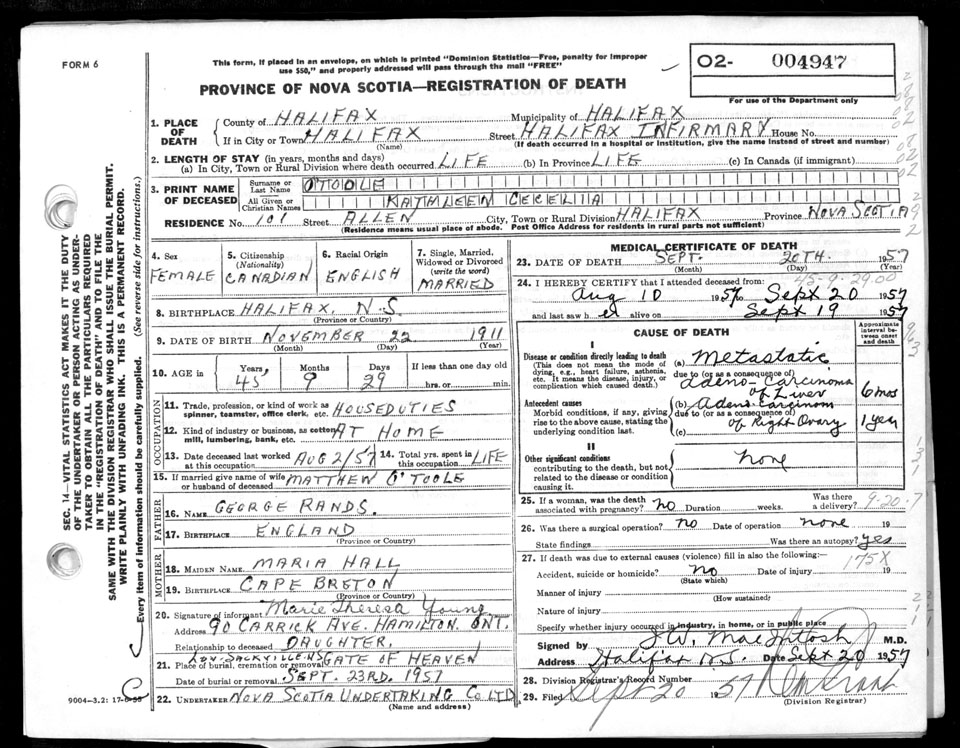 FORM 6
This form, if placed in an envelope, on which is printed "Dominion Statistics—Free, penalty for improper
use $50," and properly addressed will pass through the mail "FREE"
PROVINCE OF NOVA SCOTIA—REGISTRATION OF DEATH
O2- 004947
For use of the Department only
1. PLACE OF DEATH
County of HALIFAX Municipality of HALIFAX
If in City or Town HALIFAX Street HALIFAX INFIRMARY House No.
(Name) (If death occurred in a hospital or institution, give the name instead of street and number)
2. LENGTH OF STAY (in years, months and days)
(a) In City, Town or Rural Division where death occurred LIFE (b) In Province LIFE (c) In Canada (if immigrant)
3. PRINT NAME OF DECEASED
Surname or Last Name O'TOOLE
All Given or Christian Names KATHLEEN CECELIA
RESIDENCE No. 101 Street ALLEN City, Town or Rural Division HALIFAX Province NOVA SCOTIA
(Residence means usual place of abode. Post Office Address for residents in rural parts not sufficient)
4. Sex FEMALE
5. Citizenship (Nationality) CANADIAN
6. Racial Origin ENGLISH
7. Single, Married, Widowed or Divorced (write the word) MARRIED
8. BIRTHPLACE HALIFAX, N.S.
(Province or Country)
9. DATE OF BIRTH NOVEMBER 22 1911
(Month) (Day) (Year)
10. AGE in Years, Months Days If less than one day old
45 9 29 hrs. or min.
OCCUPATION
11. Trade, profession, or kind of work as spinner, teamster, office clerk, etc. HOUSEDUTIES
12. Kind of industry or business, as cotton mill, lumbering, bank, etc. AT HOME
13. Date deceased last worked at this occupation AUG 2/57
14. Total yrs. spent in this occupation LIFE
15. If married give name of wife or husband of deceased MATTHEW O'TOOLE
FATHER
16. NAME GEORGE RANDS.
17. BIRTHPLACE ENGLAND
(Province or Country)
MOTHER
18. MAIDEN NAME MARIA HALL
19. BIRTHPLACE CAPE BRETON
(Province or Country)
20. Signature of informant Marie Theresa Young
Address 90 CARRICK AVE. HAMILTON. ONT.
Relationship to deceased DAUGHTER.
21. Place of burial, cremation or removal LOW-SACKVILLE-NS GATE OF HEAVEN
Date of burial or removal SEPT. 23RD. 1957
22. UNDERTAKER NOVA SCOTIA UNDERTAKING CO LTD
(Name and address)
9004-3.2:
MEDICAL CERTIFICATE OF DEATH
23. DATE OF DEATH SEPT. 20TH. 1957
(Month) (Day) (Year)
45-9-29.00
24. I HEREBY CERTIFY that I attended deceased from:
Aug 10 1956 Sept 20 1957
and last saw h er alive on Sept 19 1957
CAUSE OF DEATH
Approximate interval between onset and death
I
Disease or condition directly leading to death
(This does not mean the mode of dying, e.g., heart failure, asthenia, etc. It means the disease, injury, or complication which caused death.)
(a) Metastatic
due to (or as a consequence of)
Adeno-Carcinoma of Liver 6 mos
Antecedent causes
Morbid conditions, if any, giving rise to the above cause, stating the underlying condition last.
(b) Adeno Carcinom
due to (or as a consequence of)
(c) of Right Ovary 1 year
II
Other significant conditions
contributing to the death, but not related to the disease or condition causing it.
none
25. If a woman, was the death associated with pregnancy? no Duration weeks. Was there a delivery?
9-20-7
26. Was there a surgical operation? no Date of operation none 19
State findings Was there an autopsy? yes
27. If death was due to external causes (violence) fill in also the following:
175X
Accident, suicide or homicide? no Date of injury 19
(State which)
Manner of injury
(How sustained)
Nature of injury
Specify whether injury occurred in industry, in home, or in public place
Signed by J.W. MacIntosh M.D.
Address Halifax N.S. Date Sept 20 1957
28. Division Registrar's Record Number
29. Filed Sept 20 1957
(Division Registrar)
SEC. 14—VITAL STATISTICS ACT MAKES IT THE DUTY
OF THE UNDERTAKER OR PERSON ACTING AS UNDER-
TAKER TO OBTAIN ALL THE PARTICULARS REQUIRED
IN THE "REGISTRATION OF DEATH" AND TO FILE THE
SAME WITH THE DIVISION REGISTRAR WHO SHALL ISSUE THE BURIAL PERMIT.
WRITE PLAINLY WITH UNFADING INK. THIS IS A PERMANENT RECORD.
Every item of information should be carefully supplied. (See reverse side for instructions.)